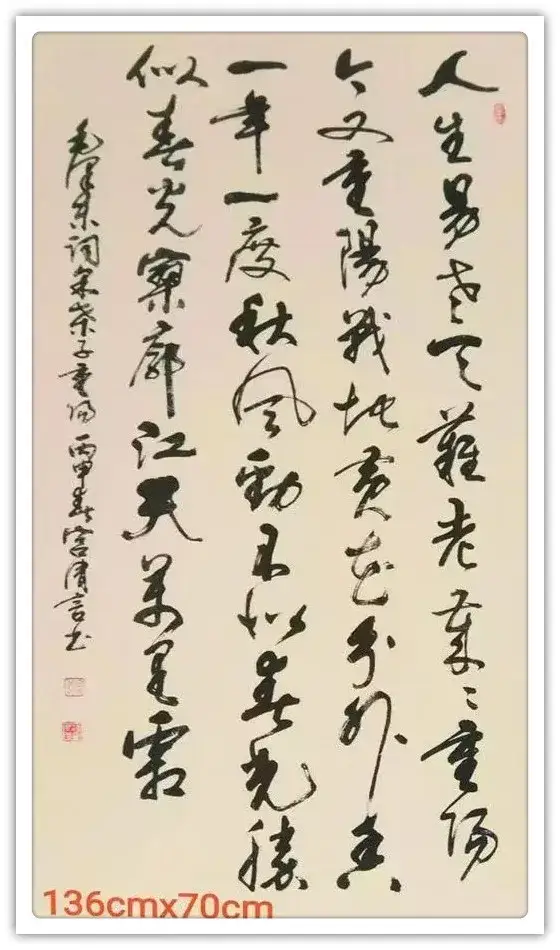 人生易老天難老歲々重阳
今又重陽戰地黄花分外香
一年一度秋風勁不似春光勝
似春光寥廓江天萬里霜
毛澤东詞采桑子重阳 丙申春 清言书
136cmx70cm